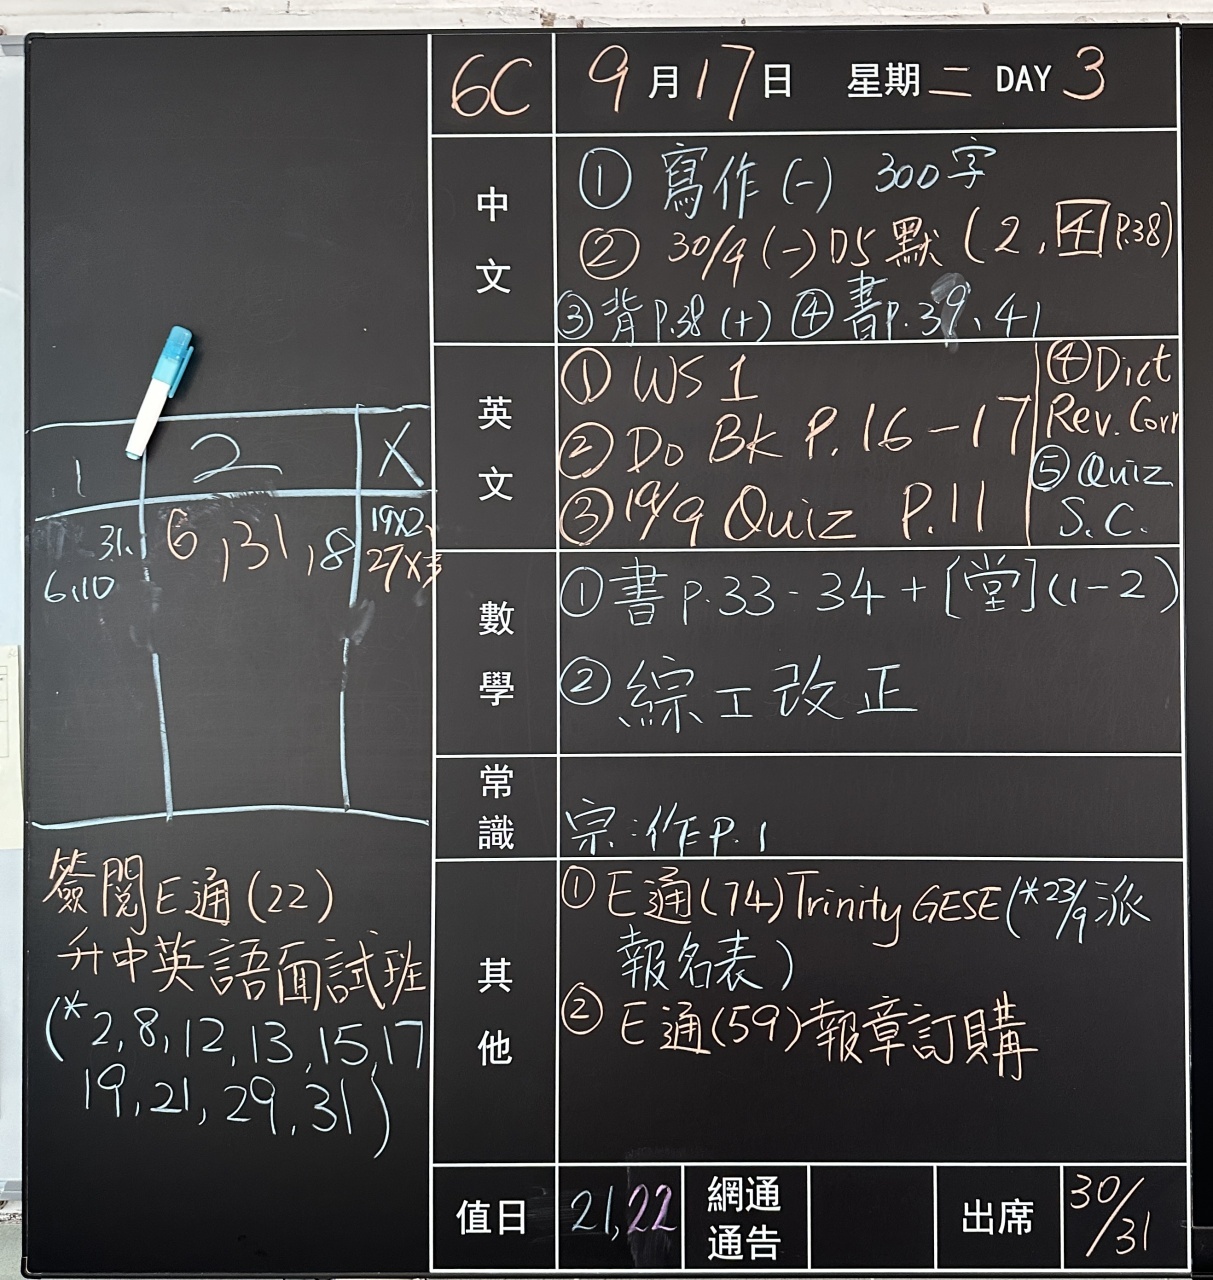 6C 9月17日 星期二 DAY 3
中文
① 寫作(一) 300字
② 30/9 (一) D5 默 (2, 4 P.38)
③ 背 P.38 (十) ④ 書 P.39、41
英文
① WS 1
② Do Bk P. 16 - 17
③ 19/9 Quiz P.11
④ Dict
Rev. Corr
⑤ Quiz
S.C.
數學
① 書 P.33 - 34 + [堂] (1-2)
② 綜工改正
常識
宗:作 P.1
其他
① E通(74) Trinity GESE (*23/9 派
報名表)
② E通(59) 報章訂購
值日 21, 22 網通通告 出席 30/31
1 2 X
31. 6, 31, 8 19X2
6,10 27X
簽閱E通(22)
升中英語面試班
(*2, 8, 12, 13, 15, 17
19, 21, 29, 31)